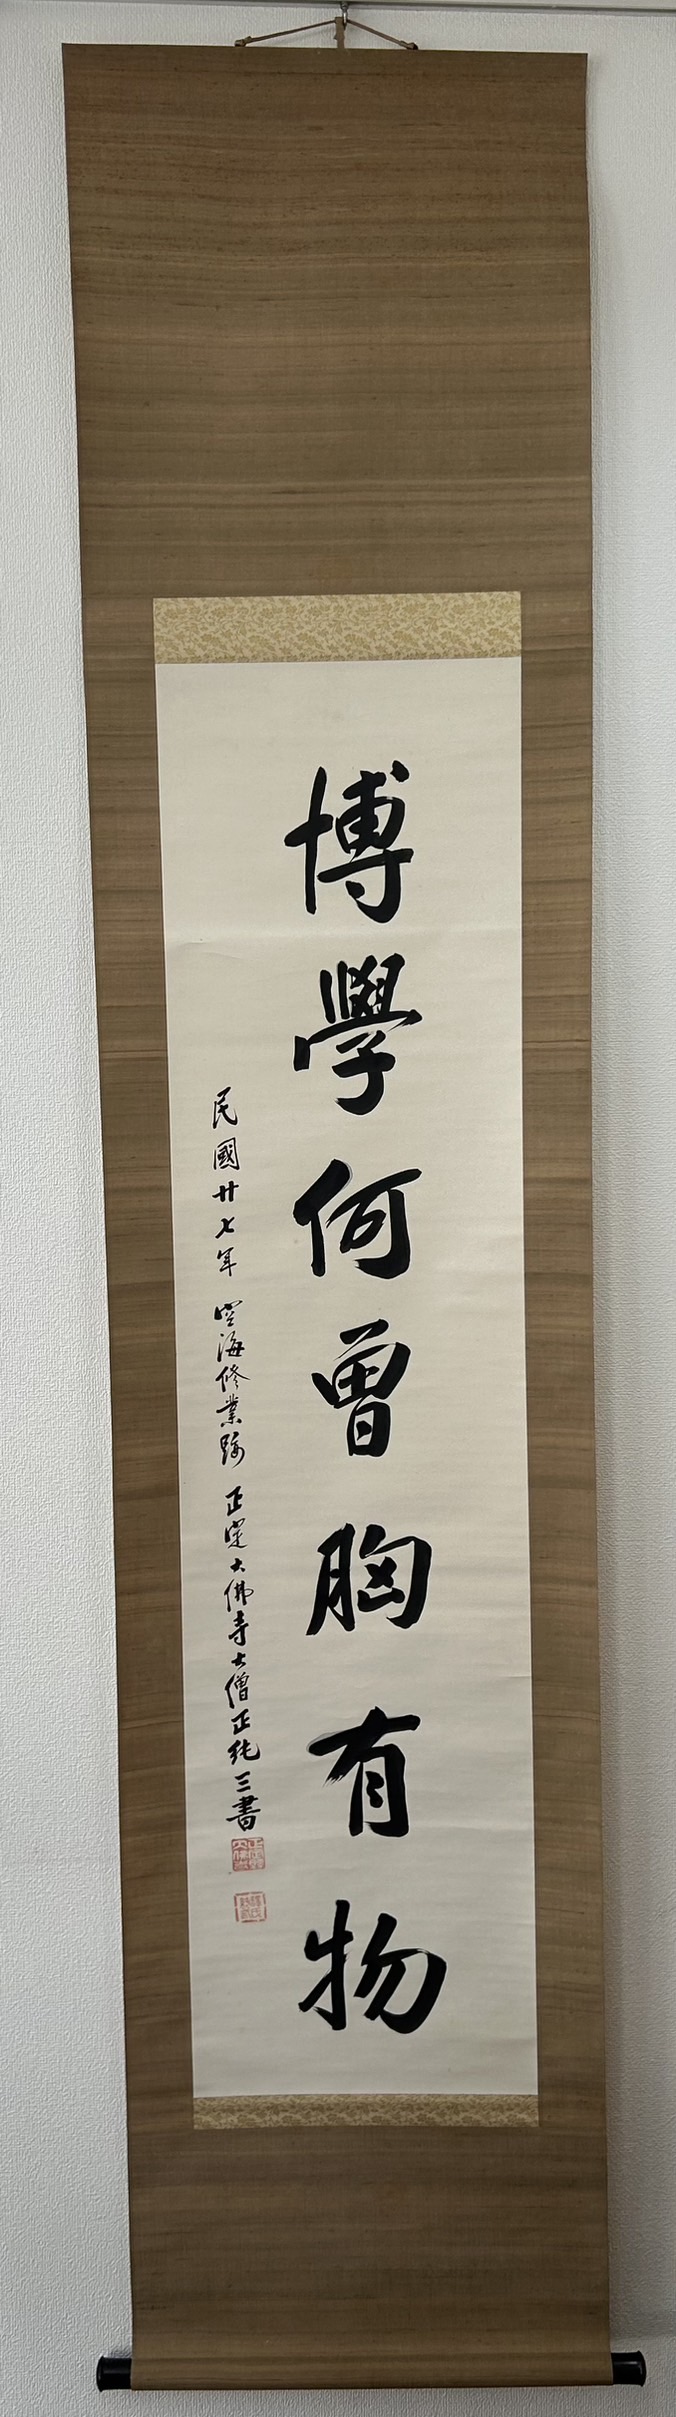 博學何曾胸有物
民國廿七年 空海修業跡 正定大佛寺大僧正純三書